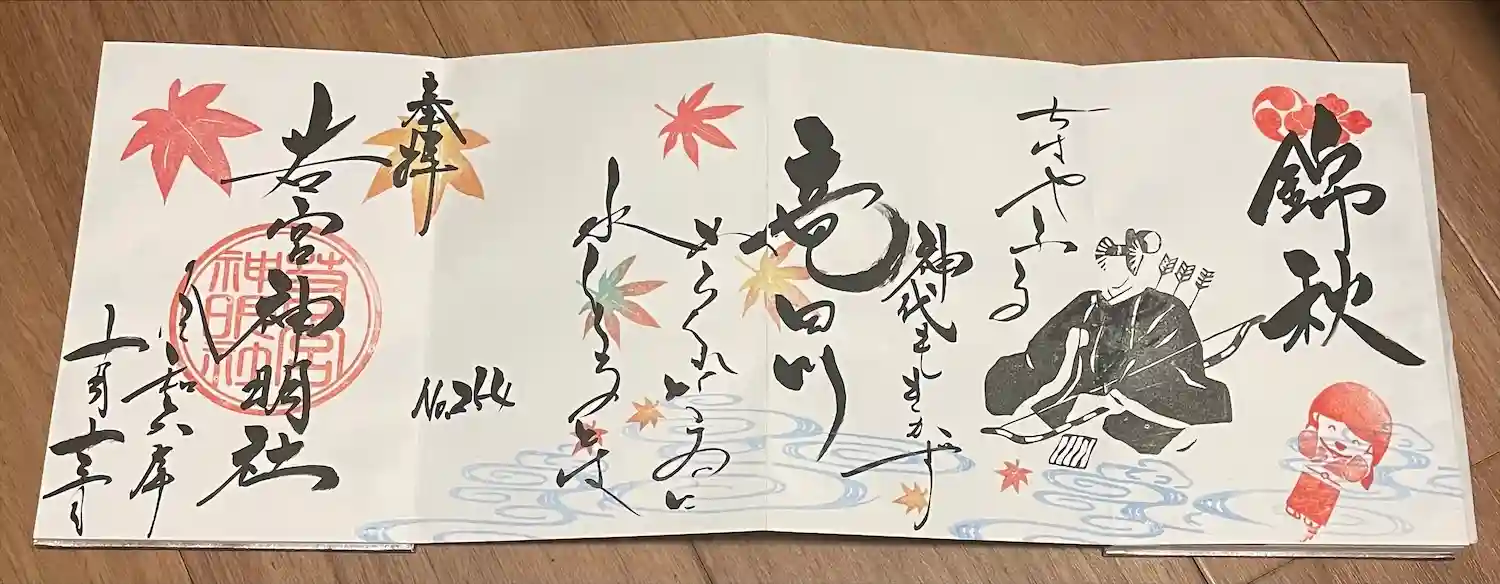 錦秋
ちはやふる
神代もきかず
竜田川
からくれなゐに
水くくるとは
奉拝
No.264
若宮神明社
若宮
神明社
令和六年